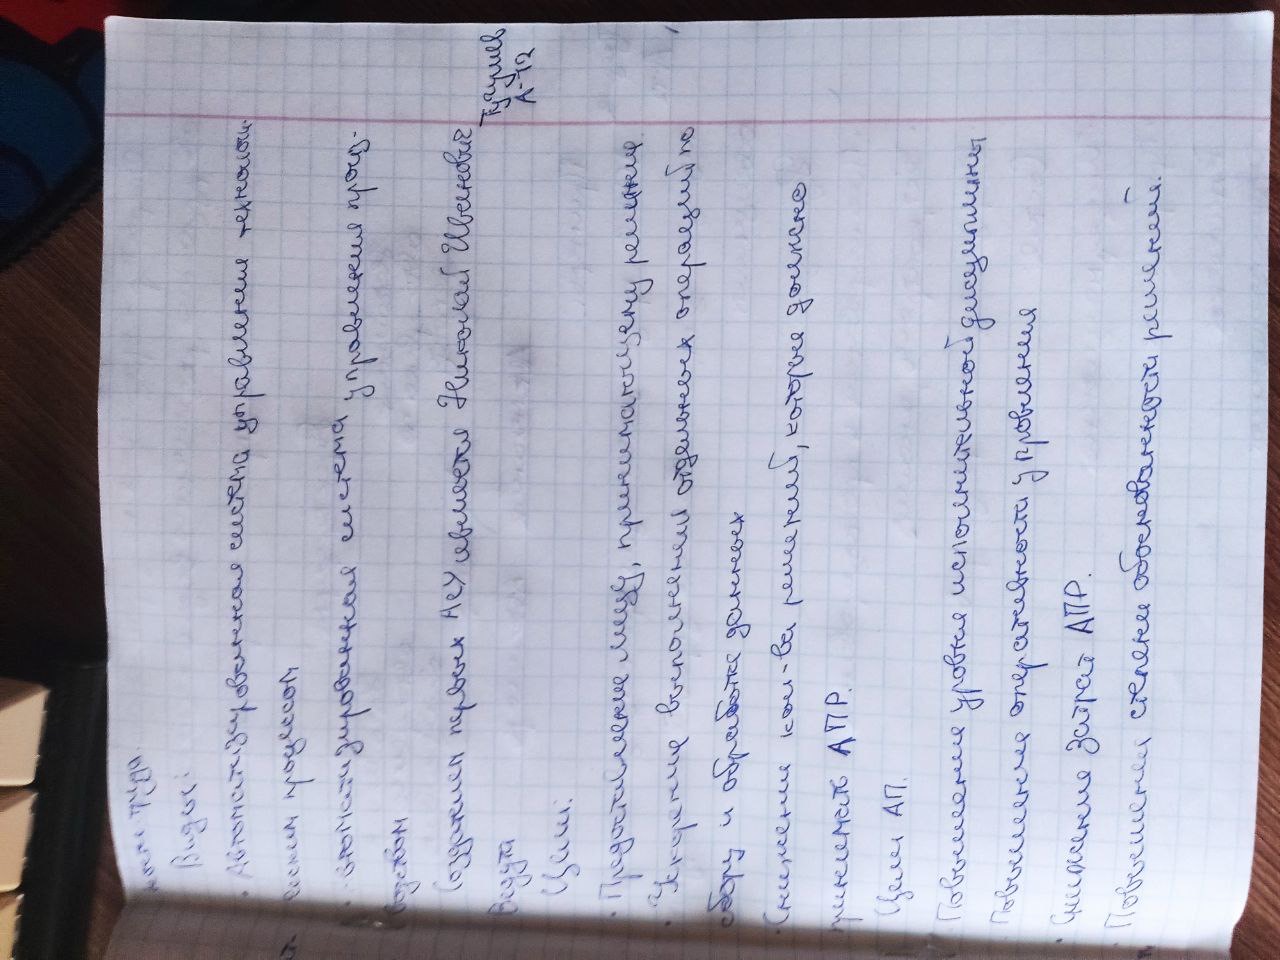 труда.
Виды:
• Автоматизированная система управление технологи-
ческим процессом
• Автоматизированная система управления произ-
водством
Создателем первых АСУ является Николай Иванович
Ведута
Тугушев
А-12
Цели:
• Предоставление лицу, принимающему решение
• Ускорение выполнений отдельных операций по
сбору и обработке данных
• Снижение кол-ва решений, которые должно
принимать ЛПР.
Цели АП.
• Повышение уровня исполнительной дисциплины
Повышение оперативности управления
• Снижение затрат ЛПР.
• Повышений степени обоснованности решений.